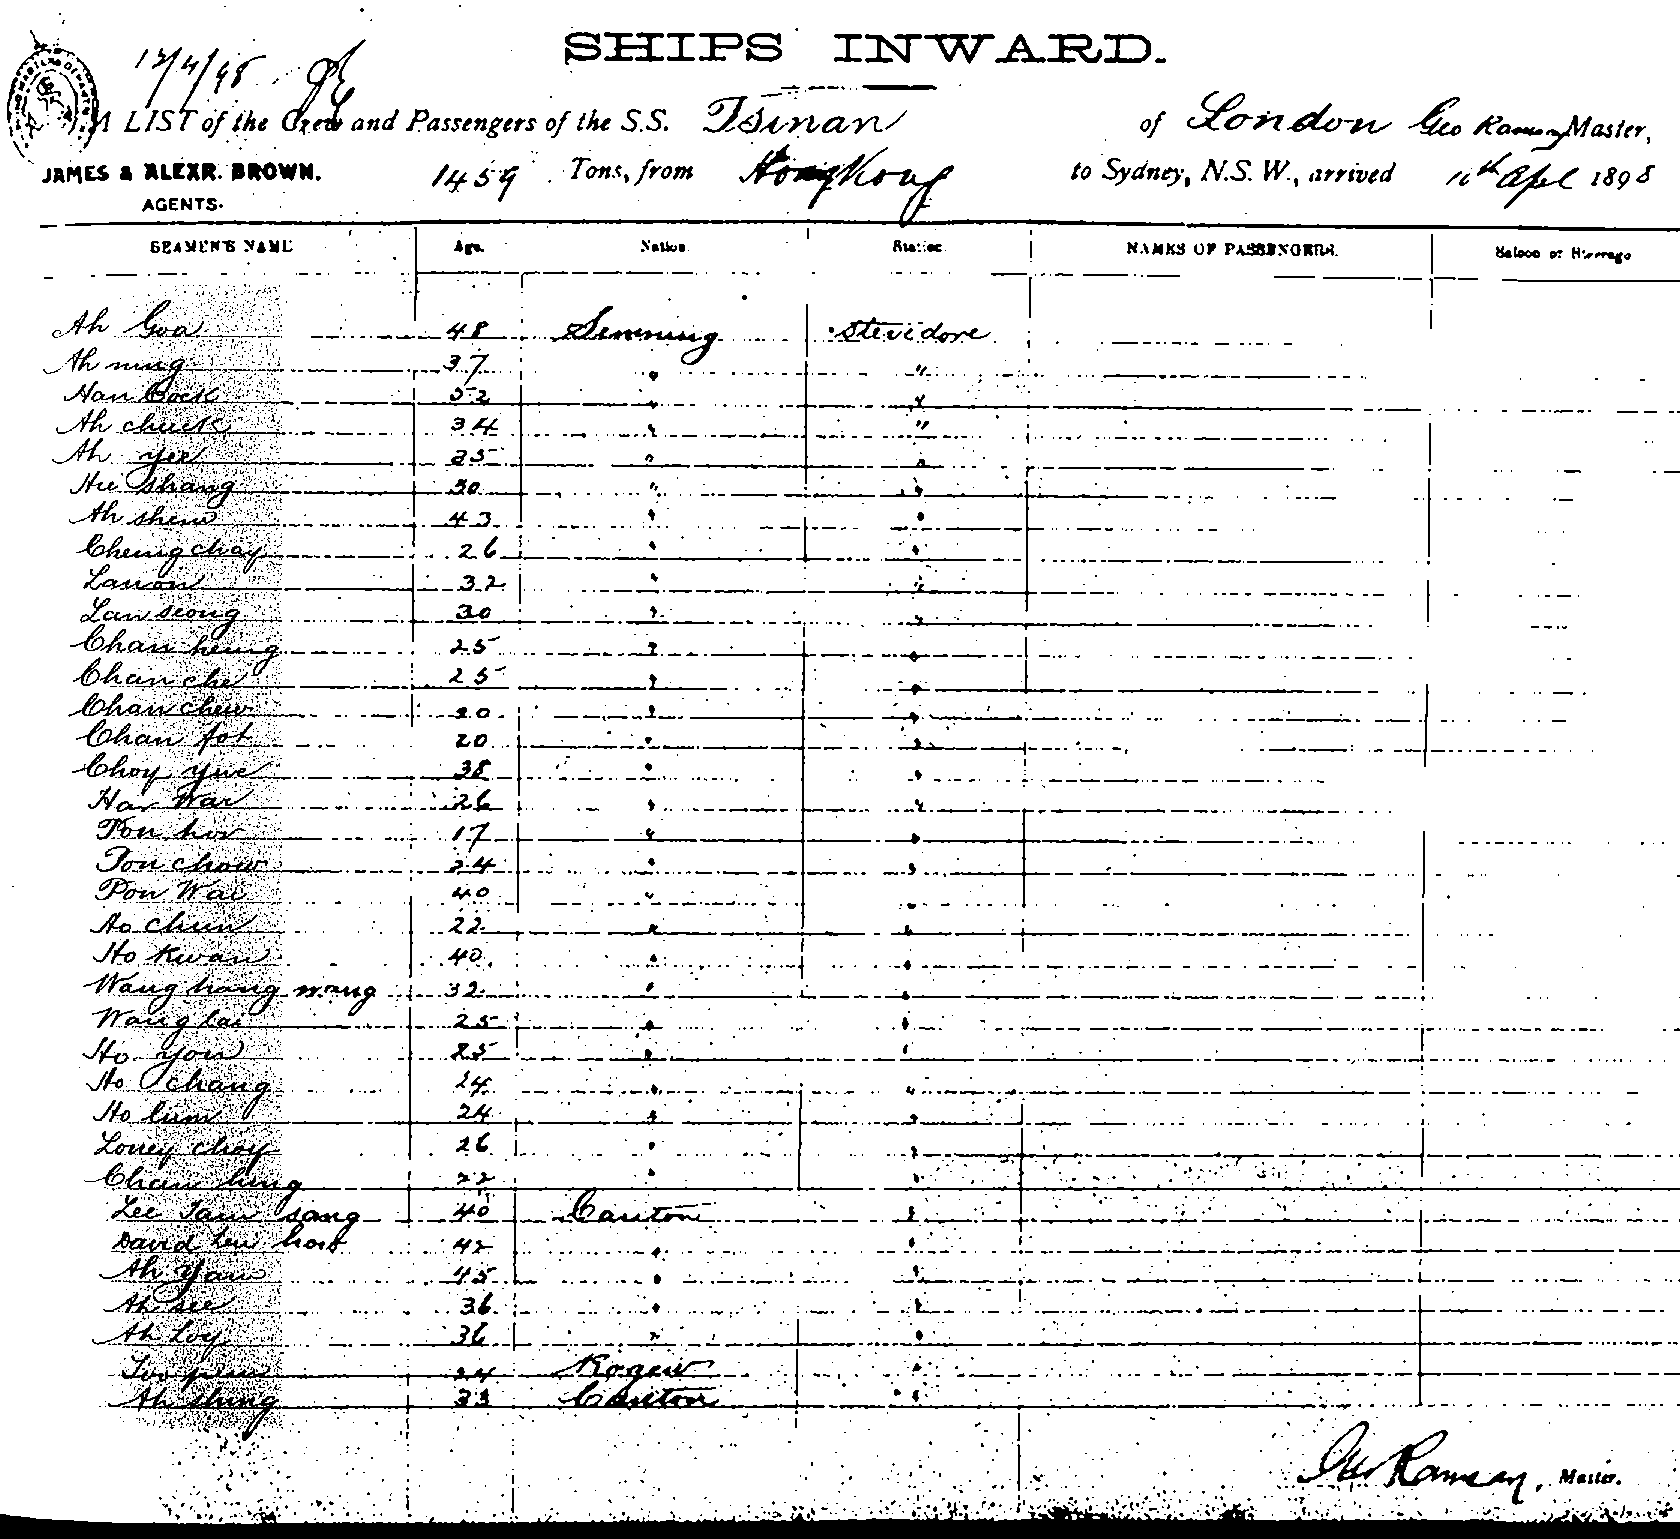 SHIPS INWARD.
12/4/98
A LIST of the Crew and Passengers of the S.S. Tsinan of London Geo Ramsay Master,
JAMES & ALEXR. BROWN. 1459 Tons, from Hong Kong to Sydney, N.S.W., arrived April 1898
AGENTS.
SEAMEN'S NAME Age. Nation. Station. NAMES OF PASSENGERS. Saloon or Steerage
Ah Goa 48 Sunning Stevidore
Ah ning 37 " "
Han Cock 52 " "
Ah chuck 34 " "
Ah yee 35 " "
Hee shang 30 " "
Ah shem 43 " "
Cheung choy 26 " "
Lanon 32 " "
Lan seong 30 " "
Chan heung 25 " "
Chan che 25 " "
Chan chew 20 " "
Chan fot 20 " "
Choy yue 38 " "
Har War 26 " "
Pon hor 17 " "
Pon chow 24 " "
Pon Wai 40 " "
Ho chun 22 " "
Ho Kwan 40 " "
Wang hang wang 32 " "
Wang lai 25 " "
Ho you 25 " "
Ho chang 24 " "
Ho lum 24 " "
Loney choy 26 " "
Cham hing 22 " "
Lee Tam sang 40 Canton "
David Lew 42 " "
Ah Yam 45 " "
Ah see 36 " "
Ah Loy 36 " "
24 "
Ah shing 33 Canton "
Geo Ramsay, Master.